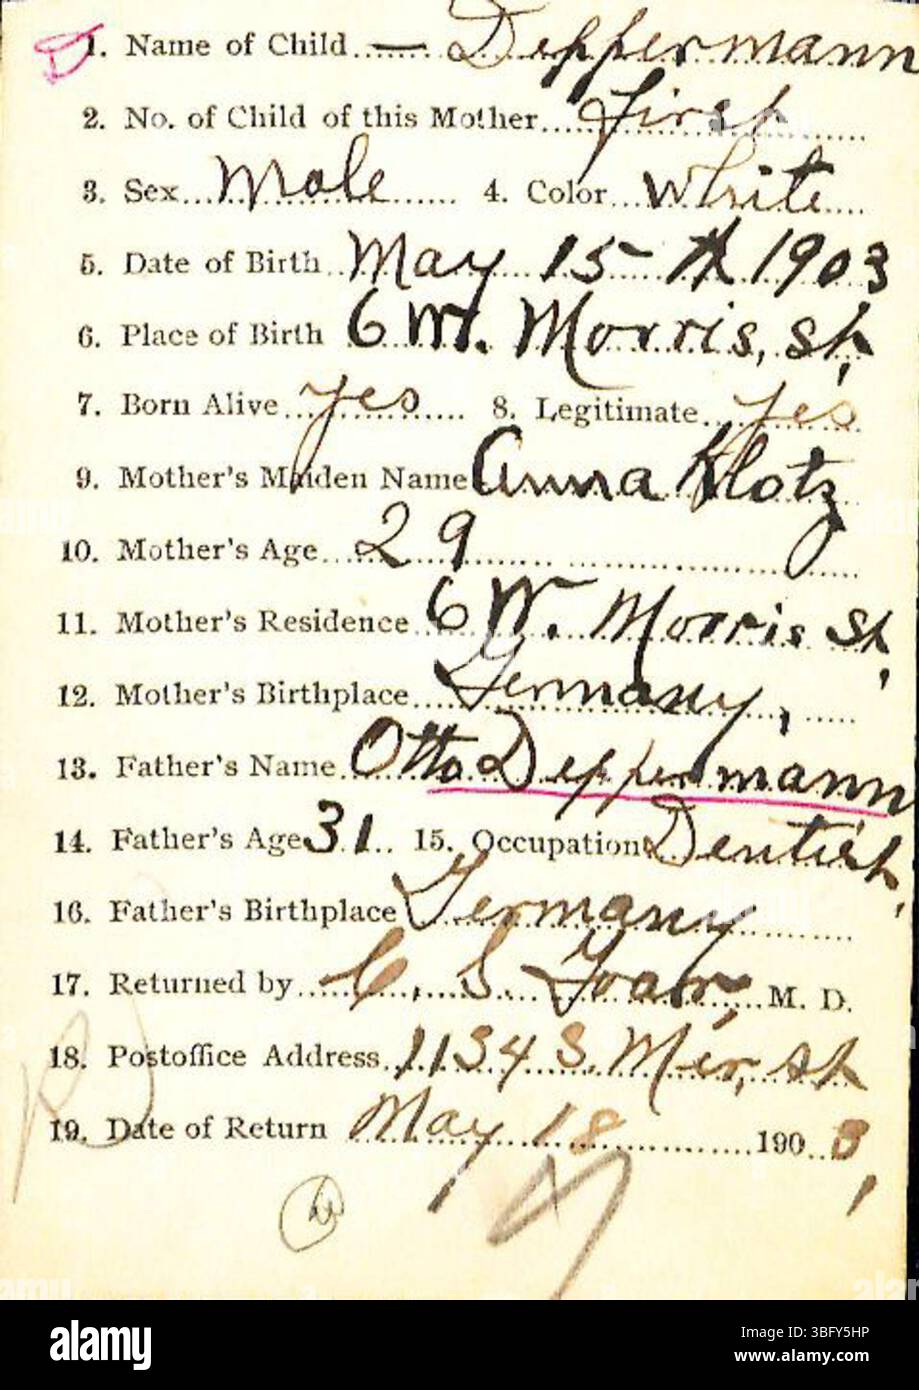 D
1. Name of Child — Deppermann
2. No. of Child of this Mother first
3. Sex Male 4. Color White
5. Date of Birth May 15th 1903
6. Place of Birth 6 W. Morris, st,
7. Born Alive yes 8. Legitimate yes
9. Mother's Maiden Name Anna Klotz
10. Mother's Age 29
11. Mother's Residence 6 W. Morris st,
12. Mother's Birthplace Germany,
13. Father's Name Otto Deppermann
14. Father's Age 31 15. Occupation Dentist,
16. Father's Birthplace Germany
17. Returned by C. S. Goar, M. D.
18. Postoffice Address 1134 S. Mer, st
19. Date of Return May 18 1903,
alamy
Image ID: 3BFY5HP
www.alamy.com